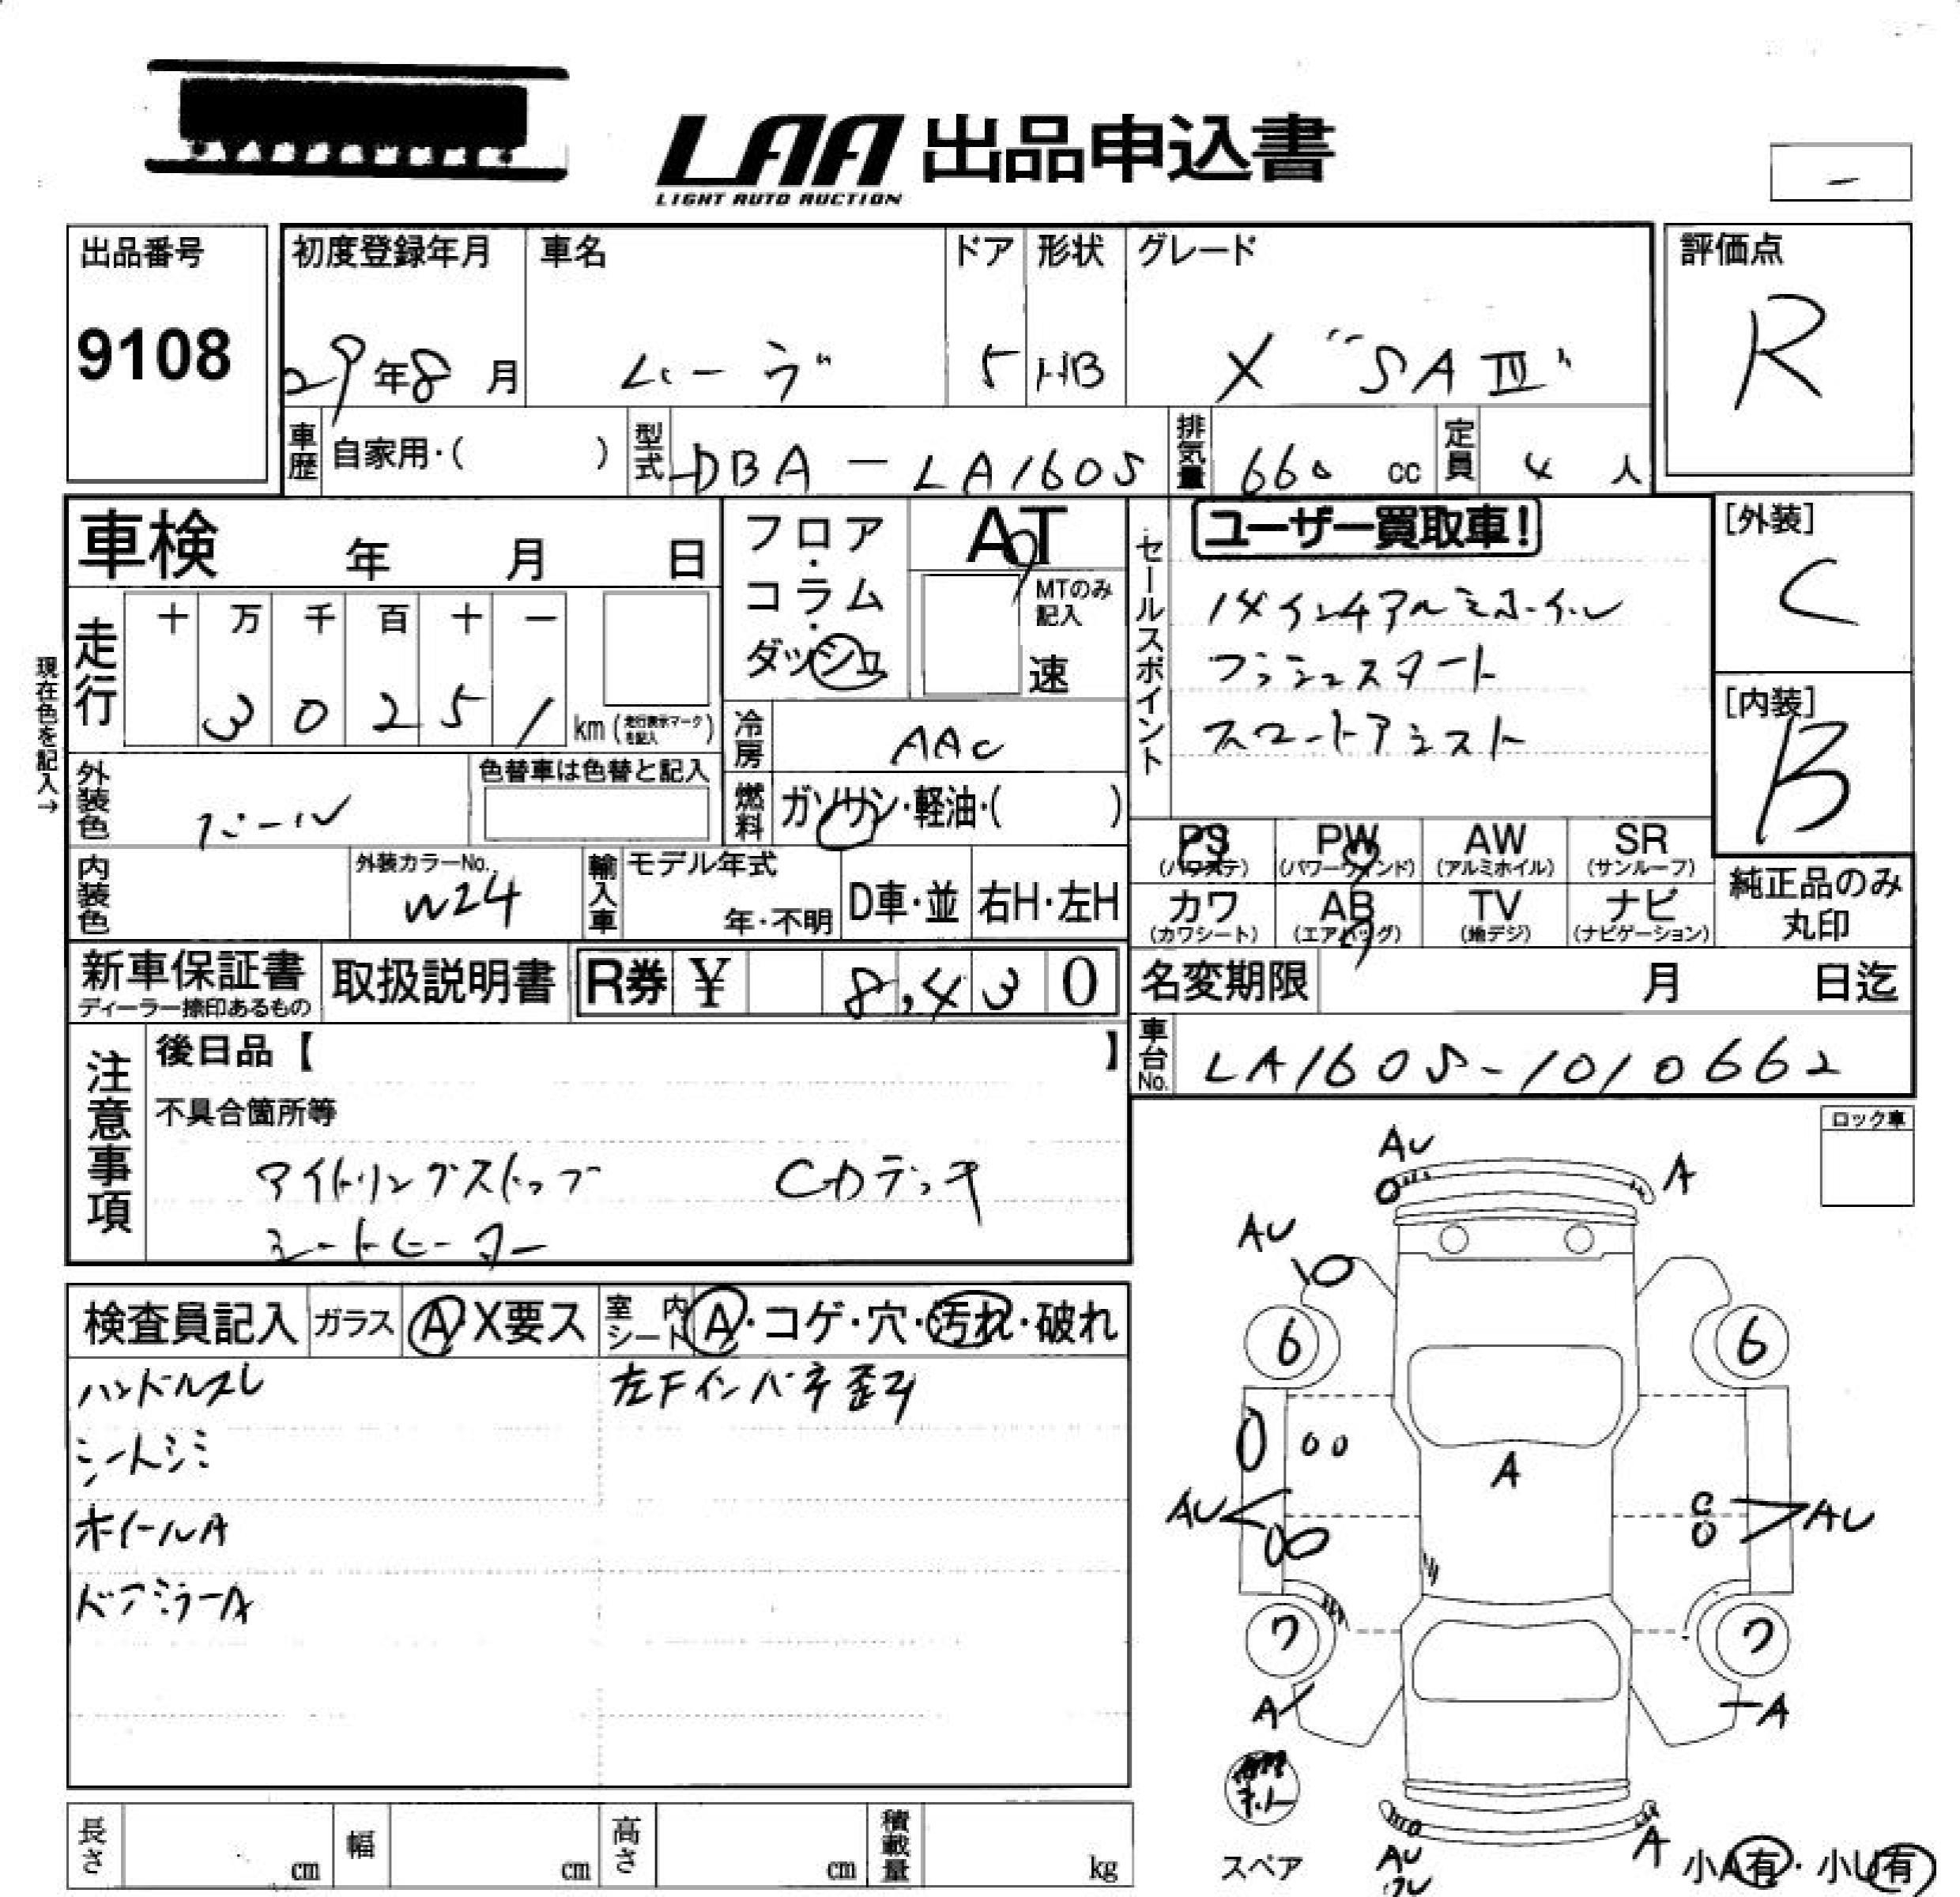 LAA 出品申込書
LIGHT AUTO AUCTION
出品番号
9108
初度登録年月 車名 ドア 形状 グレード
29年8月 ムーヴ 5 HB X "SAⅢ"
評価点
R
車歴 自家用・( ) 型式 DBA-LA160S 排気量 660 cc 定員 4 人
車検 年 月 日
フロア・コラム・ダッシュ
AT
MTのみ記入
速
セールスポイント
ユーザー買取車!
14インチアルミホイール
プッシュスタート
スマートアシスト
[外装]
C
[内装]
B
現在色を記入→
走行
十 万 千 百 十 一
3 0 2 5 1 km (走行表示マークを記入)
冷房 AAC
外装色 パール
色替車は色替と記入
燃料 ガソリン・軽油・( )
PS (パワステ) PW (パワーウインド) AW (アルミホイル) SR (サンルーフ)
カワ (カワシート) AB (エアバッグ) TV (地デジ) ナビ (ナビゲーション)
純正品のみ丸印
内装色
外装カラーNo.
W24
輸入車 モデル年式
年・不明 D車・並 右H・左H
新車保証書 取扱説明書 R券 ¥ 8,430
ディーラー捺印あるもの
名変期限 月 日迄
車台No. LA160S-1010662
注意事項
後日品【 】
不具合箇所等
アイドリングストップ CDデッキ
シートヒーター
ロック車
検査員記入 ガラス A X要ス 室内シート A・コゲ・穴・汚れ・破れ
ハンドルスレ 左Fインパネ歪ミ
シートシミ
ホイールA
ドアミラーA
AU
A
AU
6 6
A
AU AU
7 7
A A
スペア
AU
A
小A有・小U有
長さ cm 幅 cm 高さ cm 積載量 kg